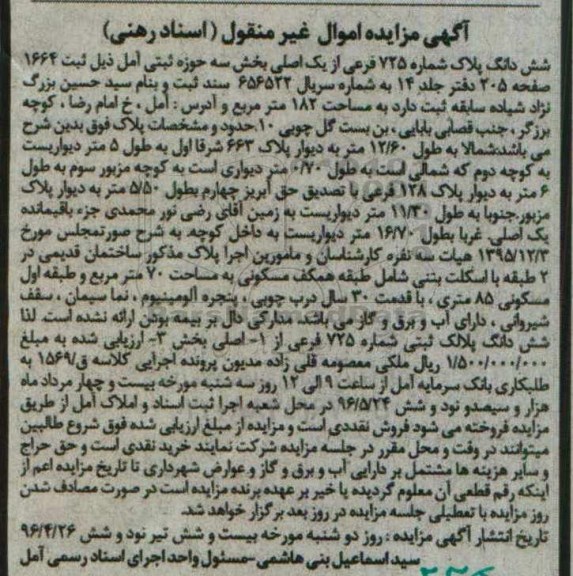 آگهی مزایده اموال غیر منقول (اسناد رهنی)
شش دانگ پلاک شماره ۷۲۵ فرعی از یک اصلی بخش سه حوزه ثبتی آمل ذیل ثبت ۱۶۶۴
صفحه ۲۰۵ دفتر جلد ۱۴ به شماره سریال ۶۵۶۵۲۲ سند ثبت و بنام سید حسین بزرگ
نژاد شیاده سابقه ثبت دارد به مساحت ۱۸۲ متر مربع و آدرس : آمل ، خ امام رضا ، کوچه
برزگر ، جنب قصابی بابایی ، بن بست گل چوبی ۱۰.حدود و مشخصات پلاک فوق بدین شرح
می باشد:شمالا به طول ۱۲/۶۰ متر به دیوار پلاک ۶۶۳ شرقا اول به طول ۵ متر دیواریست
به کوچه دوم که شمالی است به طول ۰/۷۰ متر دیواری است به کوچه مزبور سوم به طول
۶ متر به دیوار پلاک ۱۲۸ فرعی با تصدیق حق آبریز چهارم بطول ۵/۵۰ متر به دیوار پلاک
مزبور.جنوبا به طول ۱۱/۳۰ متر دیواریست به زمین آقای رضی نور محمدی جزء باقیمانده
یک اصلی. غربا بطول ۱۶/۷۰ متر دیواریست به داخل کوچه. به شرح صورتمجلس مورخ
۱۳۹۵/۱۲/۳ هیات سه نفره کارشناسان و مامورین اجرا پلاک مذکور ساختمان قدیمی در
۲ طبقه با اسکلت بتنی شامل طبقه همکف مسکونی به مساحت ۷۰ متر مربع و طبقه اول
مسکونی ۸۵ متری ، با قدمت ۳۰ سال درب چوبی ، پنجره آلومینیوم ، نما سیمان ، سقف
شیروانی ، دارای آب و برق و گاز می باشد. مدارکی دال بر بیمه بودن ارائه نشده است. لذا
شش دانگ پلالک ثبتی شماره ۷۲۵ فرعی از ۱- اصلی بخش ۳- ارزیابی شده به مبلغ
۱/۵۰۰/۰۰۰/۰۰۰ ریال ملکی معصومه قلی زاده مدیون پرونده اجرایی کلاسه ق/۱۵۶۹ به
طلبکاری بانک سرمایه آمل از ساعت ۹ الی ۱۲ روز سه شنبه مورخه بیست و چهار مرداد ماه
هزار و سیصدو نود و شش ۹۶/۵/۲۴ در محل شعبه اجرا ثبت اسناد و املاک آمل از طریق
مزایده فروخته می شود فروش نقدی است و مزایده از مبلغ ارزیابی شده فوق شروع طالبین
میتوانند در وقت و محل مقرر در جلسه مزایده شرکت نمایند خرید نقدی است و حق حراج
و سایر هزینه ها مشتمل بر دارایی آب و برق و گاز و عوارض شهرداری تا تاریخ مزایده اعم از
اینکه رقم قطعی آن معلوم گردیده یا خیر بر عهده برنده مزایده است در صورت مصادف شدن
روز مزایده با تعطیلی جلسه مزایده در روز بعد برگزار خواهد شد.
تاریخ انتشار آگهی مزایده : روز دو شنبه مورخه بیست و شش تیر نود و شش ۹۶/۴/۲۶
سید اسماعیل بنی هاشمی-مسئول واحد اجرای اسناد رسمی آمل